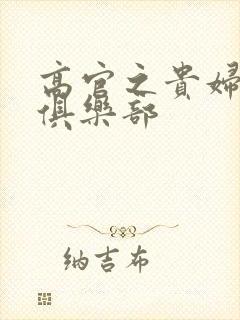 高官之貴婦
俱樂部
纳吉布